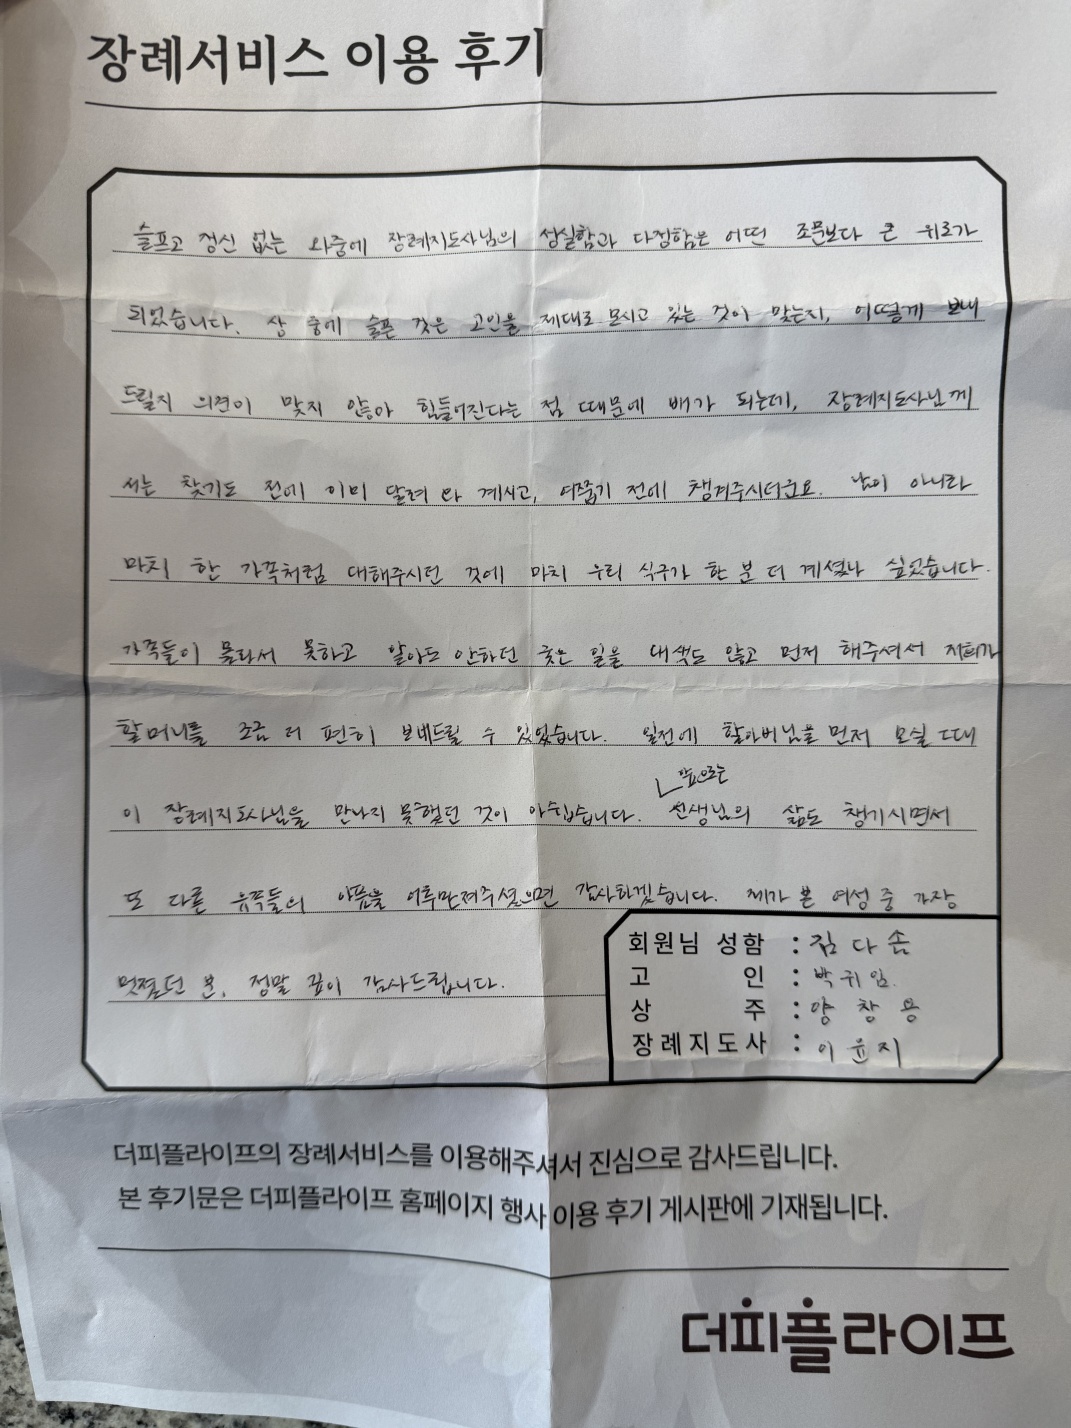 장례서비스 이용 후기
슬프고 정신 없는 와중에 장례지도사님의 성실함과 다정함은 어떤 조문보다 큰 위로가
되었습니다. 상 중에 슬픈 것은 고인을 제대로 모시고 있는 것이 맞는지, 어떻게 보내
드릴지 의견이 맞지 않아 힘들어진다는 점 때문에 배가 되는데, 장례지도사님께
서는 찾기도 전에 이미 달려 와 계시고, 여쭙기 전에 챙겨주시더군요. 남이 아니라
마치 한 가족처럼 대해주시던 것에 마치 우리 식구가 한 분 더 계셨나 싶었습니다.
가족들이 몰라서 못하고 알아도 안하던 궂은 일을 내색도 않고 먼저 해주셔서 저희가
할머니를 조금 더 편히 보내드릴 수 있었습니다. 일전에 할아버님을 먼저 모실 때
이 장례지도사님을 만나지 못했던 것이 아쉽습니다. 앞으로는 선생님의 삶도 챙기시면서
또 다른 유족들의 아픔을 어루만져주셨으면 감사하겠습니다. 제가 본 여성 중 가장
멋졌던 분, 정말 깊이 감사드립니다.
회원님 성함 : 김다솜
고 인 : 박귀임.
상 주 : 양창용
장례지도사 : 이윤지
더피플라이프의 장례서비스를 이용해주셔서 진심으로 감사드립니다.
본 후기문은 더피플라이프 홈페이지 행사 이용 후기 게시판에 기재됩니다.
더피플라이프